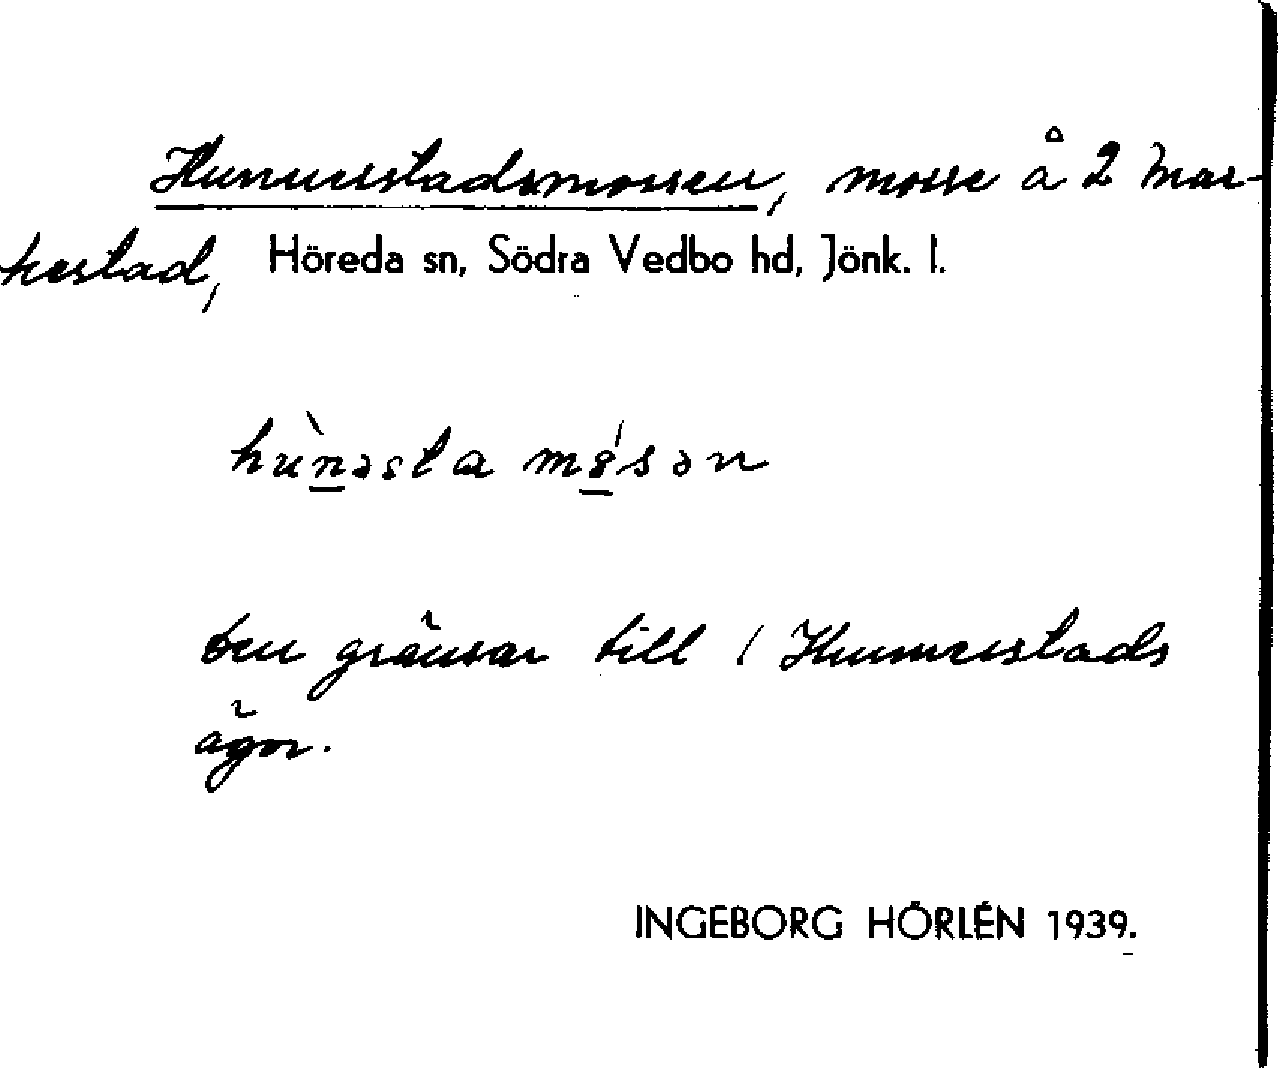 Hunnerstadsmossen, mosse å 2 Mar-
kestad, Höreda sn, Södra Vedbo hd, Jönk. l.
hùnəsta mósən
den gränsar till / Hunnerstads
ägor.
INGEBORG HÖRLÉN 1939.